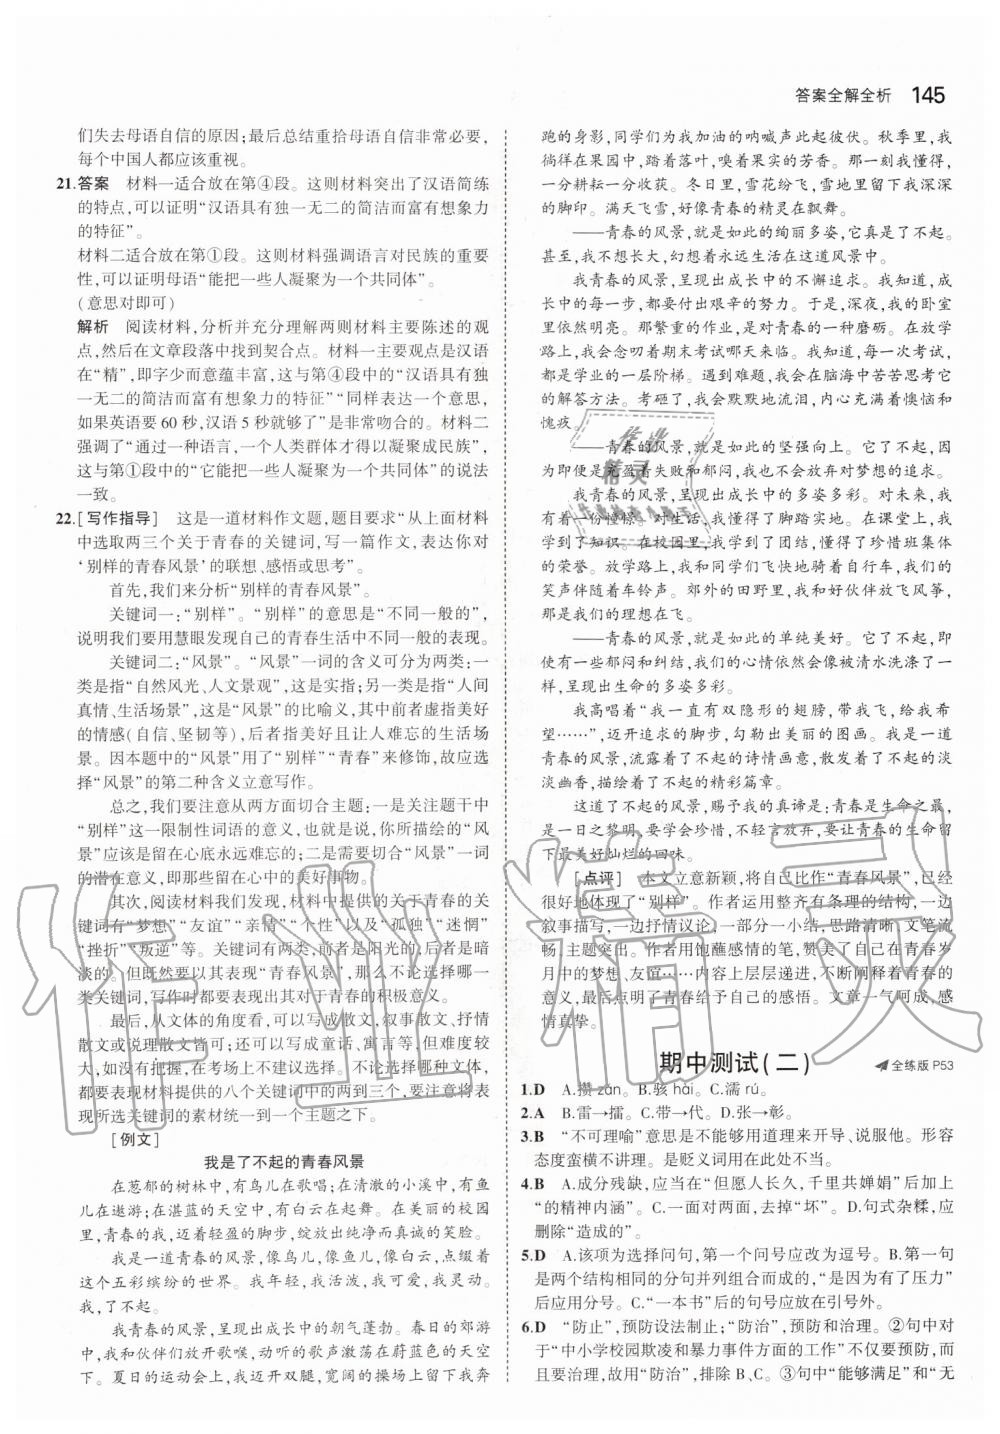 答案全解全析 145
们失去母语自信的原因；最后总结重拾母语自信非常必要，
每个中国人都应该重视。
21.答案 材料一适合放在第④段。这则材料突出了汉语简练
的特点，可以证明“汉语具有独一无二的简洁而富有想象力
的特征”。
材料二适合放在第①段。这则材料强调语言对民族的重要
性，可以证明母语“能把一些人凝聚为一个共同体”。
(意思对即可)
解析 阅读材料，分析并充分理解两则材料主要陈述的观
点，然后在文章段落中找契合点。材料一主要观点是汉语
在“精”，即字少而意蕴丰富，这与第④段中的“汉语具有独
一无二的简洁而富有想象力的特征”“同样表达一个意思，
如果英语要 60 秒，汉语 5 秒就够了”是非常吻合的。材料二
强调了“通过一种语言，一个人类群体才得以凝聚成民族”，
这与第①段中的“它能把一些人凝聚为一个共同体”的说法
一致。
22.[写作指导] 这是一道材料作文题，题目要求“从上面材料
中选取两三个关于青春的关键词，写一篇作文，表达你对
‘别样的青春风景’的联想、感悟或思考”。
首先，我们来分析“别样的青春风景”。
关键词一：“别样”。“别样”的意思是“不同一般的”，
说明我们要用慧眼发现自己的青春生活中不同一般的表现。
关键词二：“风景”。“风景”一词的含义可分为两类：一
类是指“自然风光、人文景观”，这是实指；另一类是指“人间
真情、生活场景”，这是“风景”的比喻义，其中前者虚指美好
的情感(自信、坚韧等)，后者指美好且让人难忘的生活场
景。因本题中的“风景”用了“别样”“青春”来修饰，故应选
择“风景”的第二种含义立意写作。
总之，我们要注意从两方面切合主题：一是关注题干中
“别样”这一限制性词语的意义，也就是说，你所描绘的“风
景”应该是留在心底永远难忘的；二是需要切合“风景”一词
的潜在意义，即那些留在心中的美好事物。
其次，阅读材料我们发现，材料中提供的关于青春的关
键词有“梦想”“友谊”“亲情”“个性”以及“孤独”“迷惘”
“挫折”“叛逆”等。关键词有两类，前者是阳光的，后者是暗
淡的。但既然要以其表现“青春风景”，那么不论选择哪一
类关键词，写作时都要表现出其对于青春的积极意义。
最后，从文体的角度看，可以写成散文，叙事散文、抒情
散文或说理散文皆可；还可以写成童话、寓言等，但难度较
大，如没有把握，在考场上不建议选择。不论选择何种文体，
都要表现材料提供的八个关键词中的两到三个，要注意将
所选关键词的素材统一到一个主题之下。
[例文]
我是了不起的青春风景
在葱郁的树林中，有鸟儿在歌唱；在清澈的小溪中，有鱼
儿在遨游；在湛蓝的天空中，有白云在起舞。在美丽的校园
里，青春的我，迈着轻盈的脚步，绽放出纯净而真诚的笑脸。
我是一道青春的风景，像鸟儿，像鱼儿，像白云，点缀着
这个五彩缤纷的世界。我年轻，我活泼，我可爱，我灵动。
我，了不起。
我青春的风景，呈现出成长中的朝气蓬勃。春日的郊游
中，我和伙伴们放开歌喉，动听的歌声激荡在蔚蓝色的天空
下。夏日的运动会上，我迈开双腿，宽阔的操场上留下我奔
跑的身影，同学们为我加油的呐喊声此起彼伏。秋季里，我
徜徉在果园中，踏着落叶，嗅着果实的芳香。那一刻我懂得，
一分耕耘一分收获。冬日里，雪花纷飞，雪地里留下我深深
的脚印。满天飞雪，好像青春的精灵在飘舞。
——青春的风景，就是如此的绚丽多姿，它真是了不起。
甚至，我不想长大，幻想着永远生活在这道风景中。
我青春的风景，呈现出成长中的不懈追求。我知道，成
长中的每一步，都要付出艰辛的努力。于是，深夜，我的卧室
里依然明亮。那繁重的作业，是对青春的一种磨砺。在放学
路上，我会念叨着期末考试哪天来临。我知道，每一次考试，
都是学业的一层阶梯。遇到难题，我会在脑海中苦苦思考它
的解答方法。考砸了，我会默默地流泪，内心充满着懊恼和
愧疚。
——青春的风景，就是如此的坚强向上。它了不起，因
为即便是充盈着失败和郁闷，也不会放弃对梦想的追求。
我青春的风景，呈现出成长中的多姿多彩。对未来，我
有着一份憧憬。对生活，我懂得了脚踏实地。在课堂上，我
学到了知识。在校园里，我懂得了珍惜班集体
的荣誉。放学路上，我和同学们飞快地骑着自行车，我们的
笑声伴随着车铃声。郊外的田野里，我和好伙伴放飞风筝，
那是我们的理想在飞。
——青春的风景，就是如此的单纯美好。它了不起，即
使有一些郁闷和纠结，我们的心情依然会像被清水洗涤了一
样，呈现出生命的多姿多彩。
我高唱着“我一直有双隐形的翅膀，带我飞，给我希
望……”，迈开追求的脚步，勾勒出美丽的图画。我是一道
青春的风景，流露着了不起的诗情画意，散发着了不起的淡
淡幽香，描绘着了不起的精彩篇章。
这道了不起的风景，赐予我的真谛是：青春是生命之最，
是一日之黎明，要学会珍惜，不轻言放弃，要让青春的生命留
下最美好灿烂的回味。
[点评] 本文立意新颖，将自己比作“青春风景”，已经
很好地体现了“别样”。作者运用整齐有条理的结构，一边
叙事描写，一边抒情议论，一部分一小结，思路清晰，文笔流
畅，主题突出。作者用饱蘸感情的笔，赞美了自己在青春岁
月中的梦想、友谊……内容上层层递进，不断阐释着青春的
意义，最后点明了青春给予自己的感悟。文章一气呵成，感
情真挚。
期中测试(二) 全练版 P53
1.D A.攒 zǎn。B.骇 hài。C.濡 rú。
2.A B.雷→擂。C.带→代。D.张→彰。
3.B “不可理喻”意思是不能够用道理来开导、说服他。形容
态度蛮横不讲理。是贬义词用在此处不当。
4.B A.成分残缺，应当在“但愿人长久，千里共婵娟”后加上
“的精神内涵”。C.一面对两面，去掉“坏”。D.句式杂糅，应
删除“造成的”。
5.D A.该项为选择问句，第一个问号应改为逗号。B.第一句
是两个结构相同的分句并列组合而成的，“是因为有了压力”
后应用分号。C.“一本书”后的句号应放在引号外。
6.D “防止”，预防设法制止；“防治”，预防和治理。②句中对
于“中小学校园欺凌和暴力事件方面的工作”不仅要预防，而
且要治理，故用“防治”，排除 B、C。③句中“能够满足”和“无
作业
精灵
作业精灵